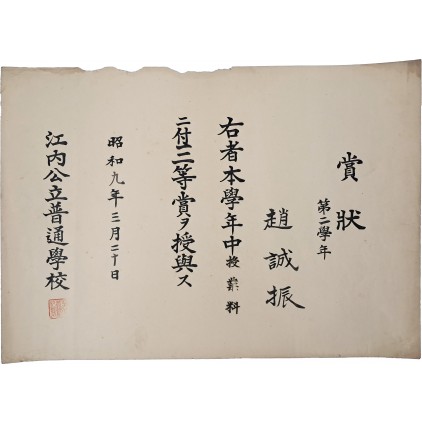 賞狀
第二學年
趙誠振
右者本學年中授業料
ニ付三等賞ヲ授與ス
昭和九年三月二十日
江内公立普通學校